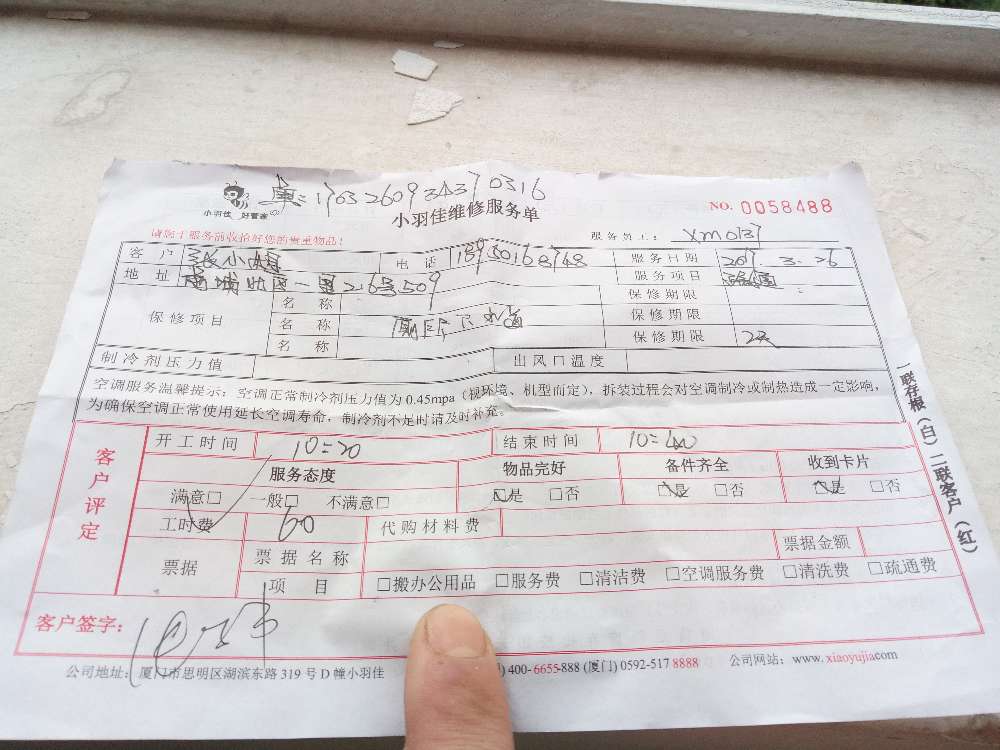 17632609343 70316
小羽佳 好管家
小羽佳维修服务单
NO. 0058488
请您于服务前收拾好您的贵重物品!
服务员工:
客户 张小姐 电话 服务日期 2017.3.26
地址 服务项目 疏通
保修期限
保修项目 名称 保修期限
名称 厕所下水道
名称 保修期限 2天
制冷剂压力值 出风口温度
空调服务温馨提示:空调正常制冷剂压力值为0.45mpa(视环境、机型而定),拆装过程会对空调制冷或制热造成一定影响,
为确保空调正常使用延长空调寿命,制冷剂不足时请及时补充。
客户评定
开工时间 10=20 结束时间 10=40
服务态度 物品完好 备件齐全 收到卡片
满意□ 一般□ 不满意□ □是 □否 □是 □否 □是 □否
工时费 60 代购材料费
票据 票据名称 票据金额
项目 □搬办公用品 □服务费 □清洁费 □空调服务费 □清洗费 □疏通费
客户签字:
公司地址:厦门市思明区湖滨东路319号D幢小羽佳 ) 400-6655-888 (厦门) 0592-517 8888 公司网站:www.xiaoyujia.com
一联存根(白)二联客户(红)